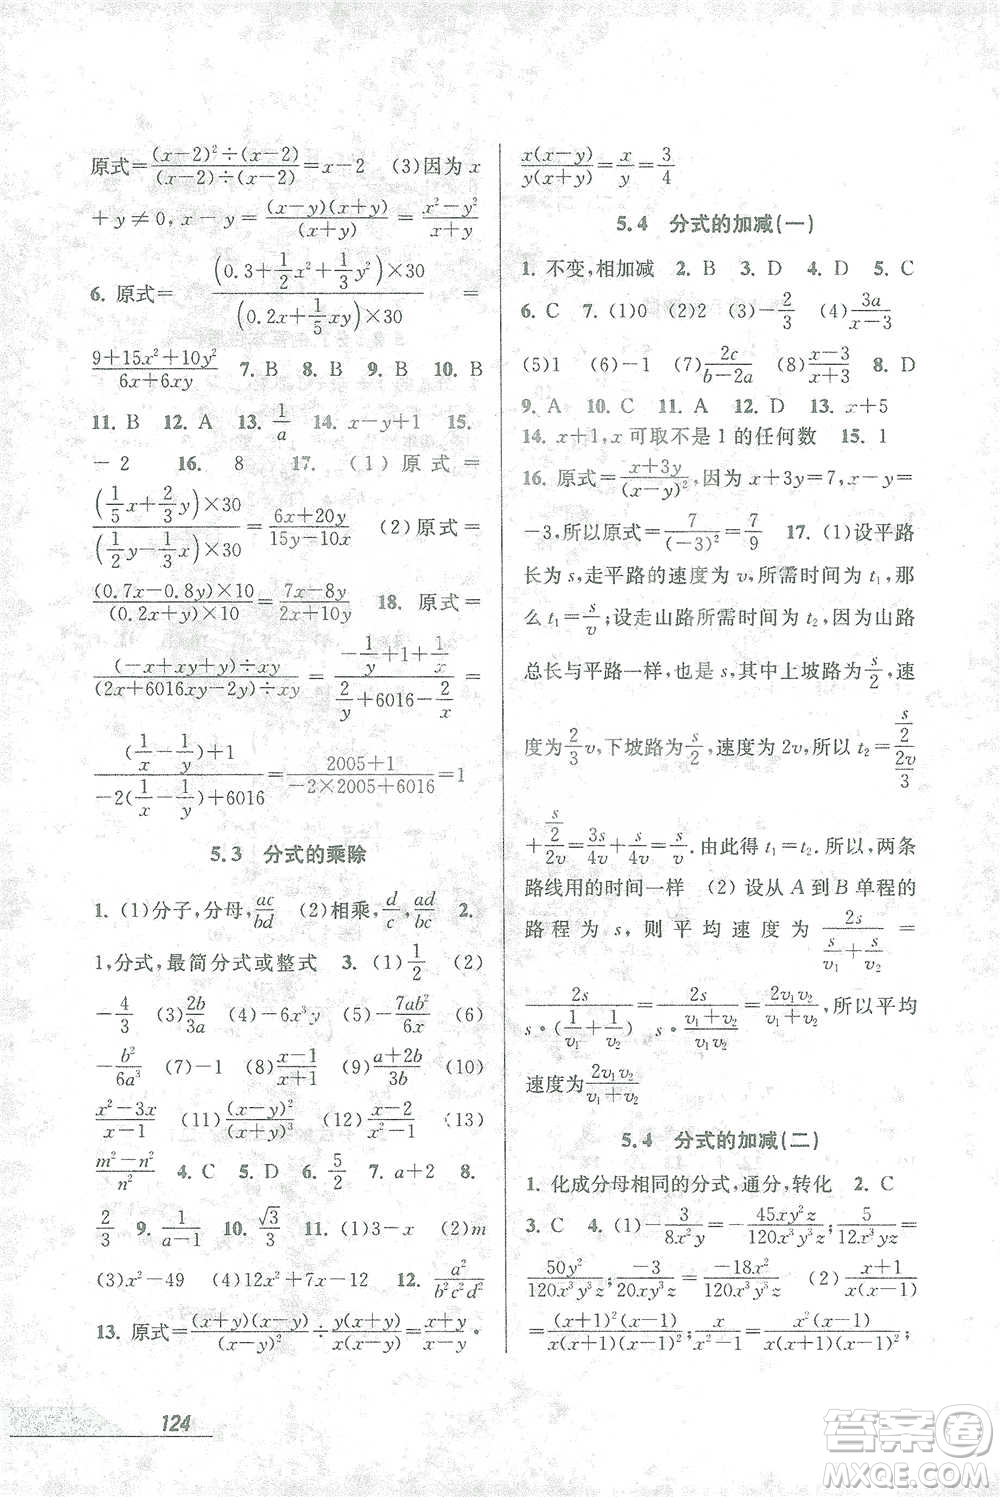 原式=\frac{(x-2)^2÷(x-2)}{(x-2)÷(x-2)}=x-2 (3)因为 x
+y≠0,x-y=\frac{(x-y)(x+y)}{(x+y)}=\frac{x^2-y^2}{x+y}
6. 原式=\frac{(0.3+\frac{1}{2}x^2+\frac{1}{3}y^2)×30}{(0.2x+\frac{1}{5}xy)×30}=
\frac{9+15x^2+10y^2}{6x+6xy} 7. B 8. B 9. B 10. B
11. B 12. A 13. \frac{1}{a} 14. x-y+1 15.
-2 16. 8 17. (1)原式=
\frac{(\frac{1}{5}x+\frac{2}{3}y)×30}{(\frac{1}{2}y-\frac{1}{3}x)×30}=\frac{6x+20y}{15y-10x} (2)原式=
\frac{(0.7x-0.8y)×10}{(0.2x+y)×10}=\frac{7x-8y}{2x+10y} 18. 原式=
\frac{(-x+xy+y)÷xy}{(2x+6016xy-2y)÷xy}=\frac{-\frac{1}{y}+1+\frac{1}{x}}{\frac{2}{y}+6016-\frac{2}{x}}=
\frac{(\frac{1}{x}-\frac{1}{y})+1}{-2(\frac{1}{x}-\frac{1}{y})+6016}=\frac{2005+1}{-2×2005+6016}=1
5.3 分式的乘除
1. (1)分子,分母,\frac{ac}{bd} (2)相乘,\frac{d}{c},\frac{ad}{bc} 2.
1,分式,最简分式或整式 3. (1)\frac{1}{2} (2)
-\frac{4}{3} (3)\frac{2b}{3a} (4)-6x^3y (5)-\frac{7ab^2}{6x} (6)
-\frac{b^2}{6a^3} (7)-1 (8)\frac{x-1}{x+1} (9)\frac{a+2b}{3b} (10)
\frac{x^2-3x}{x-1} (11)\frac{(x-y)^2}{(x+y)^3} (12)\frac{x-2}{x} (13)
\frac{m^2-n^2}{n^2} 4. C 5. D 6. \frac{5}{2} 7. a+2 8.
\frac{2}{3} 9. \frac{1}{a-1} 10. \frac{\sqrt{3}}{3} 11. (1)3-x (2)m
(3)x^2-49 (4)12x^2+7x-12 12. \frac{a^2}{b^2c^2d^2}
13. 原式=\frac{(x+y)(x-y)}{(x-y)^2}÷\frac{y(x+y)}{x(x-y)}=\frac{x+y}{x-y}·
\frac{x(x-y)}{y(x+y)}=\frac{x}{y}=\frac{3}{4}
5.4 分式的加减(一)
1. 不变,相加减 2. B 3. D 4. D 5. C
6. C 7. (1)0 (2)2 (3)-\frac{2}{3} (4)\frac{3a}{x-3}
(5)1 (6)0 (7)\frac{2c}{b-2a} (8)\frac{x-3}{x+3} 8. D
9. A 10. C 11. A 12. D 13. x+5
14. x+1,x 可取不是 1 的任何数 15. 1
16. 原式=\frac{x+3y}{(x-y)^2},因为 x+3y=7,x-y=
-3,所以原式=\frac{7}{(-3)^2}=\frac{7}{9} 17. (1)设平路
长为 s,走平路的速度为 v,所需时间为 t_1,那
么 t_1=\frac{s}{v};设走山路所需时间为 t_2,因为山路
总长与平路一样,也是 s,其中上坡路为\frac{s}{2},速
度为\frac{2}{3}v,下坡路为\frac{s}{2},速度为 2v,所以 t_2=\frac{\frac{s}{2}}{\frac{2v}{3}}
+\frac{\frac{s}{2}}{2v}=\frac{3s}{4v}+\frac{s}{4v}=\frac{s}{v}.由此得 t_1=t_2.所以,两条
路线用的时间一样 (2)设从 A 到 B 单程的
路程为 s,则平均速度为\frac{2s}{\frac{s}{v_1}+\frac{s}{v_2}}=
\frac{2s}{s·(\frac{1}{v_1}+\frac{1}{v_2})}=\frac{2s}{s·\frac{v_1+v_2}{v_1v_2}}=\frac{2v_1v_2}{v_1+v_2},所以平均
速度为\frac{2v_1v_2}{v_1+v_2}
5.4 分式的加减(二)
1. 化成分母相同的分式,通分,转化 2. C
3. C 4. (1)-\frac{3}{8x^2y}=-\frac{45xy^2z}{120x^3y^3z},\frac{5}{12x^3yz}=
\frac{50y^2}{120x^3y^3z},\frac{-3}{20xy^3z}=\frac{-18x^2}{120x^3y^3z} (2)\frac{x+1}{x(x-1)}
=\frac{(x+1)^2(x-1)}{x(x+1)(x-1)^2},\frac{x}{x^2-1}=\frac{x^2(x-1)}{x(x+1)(x-1)^2};
124
答案圈
MXQE.COM